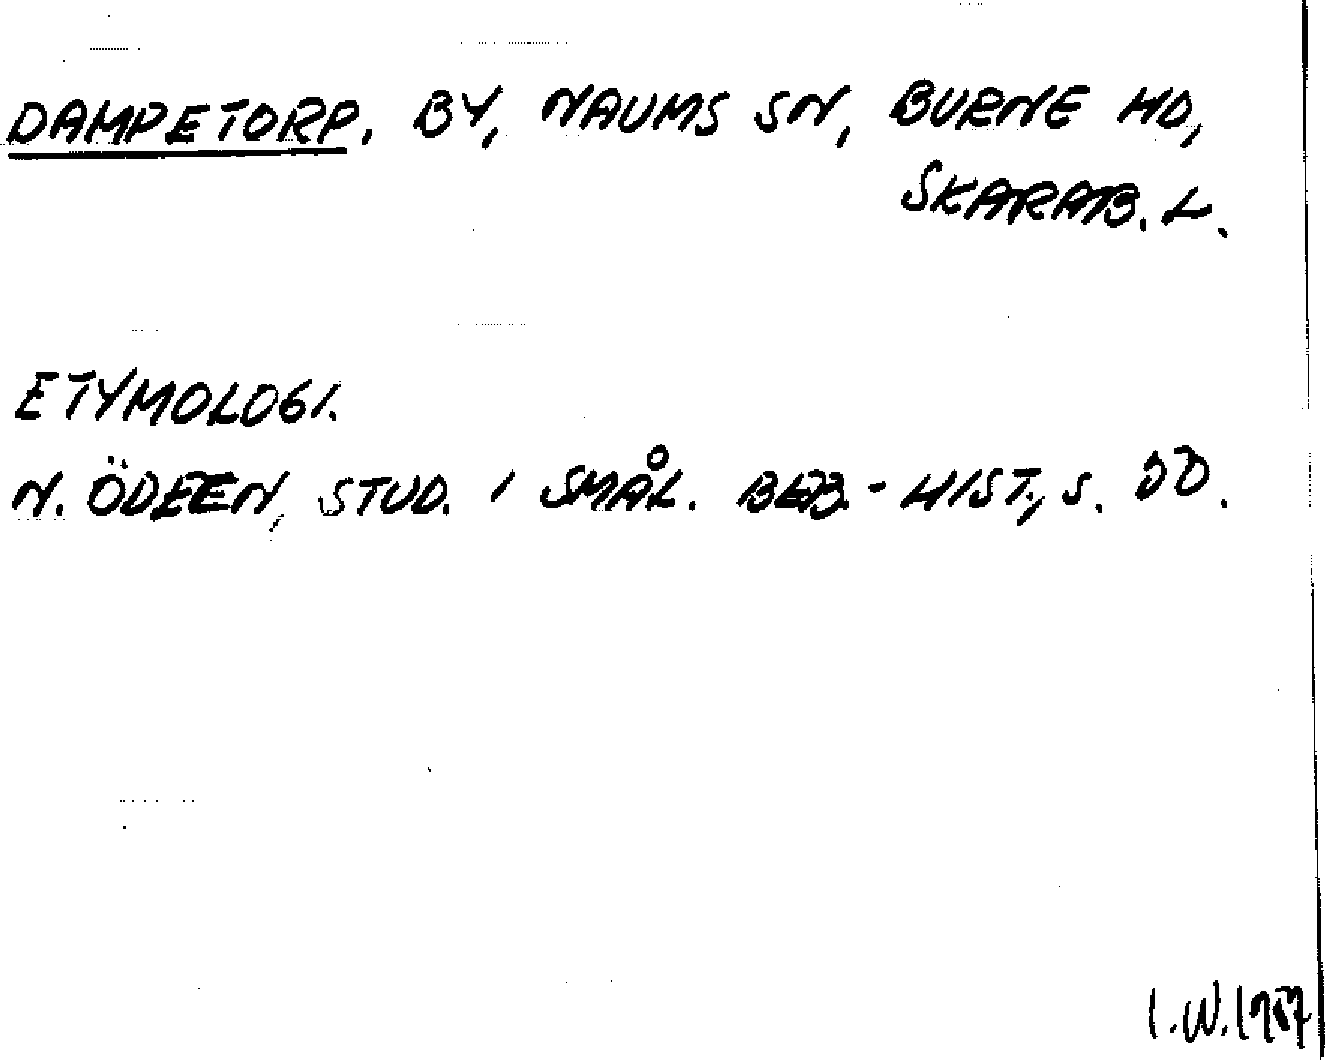 DAMPETORP. BY, NAUMS SN, BURNE HD,
SKARAB. L.
ETYMOLOGI.
N. ÖDEEN, STUD. I SMÅL. BEB.-HIST., S.
I.W.